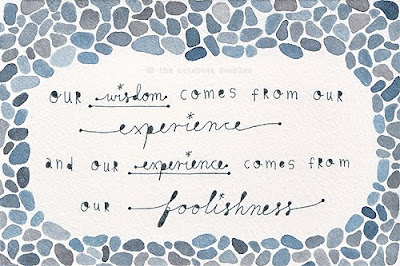 © the notebook doodles
OUR wisdom comes from our
experience
and our experience comes from
our foolishness